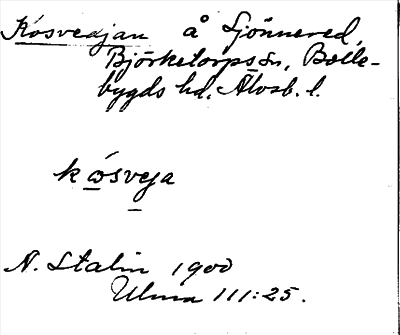 Kösvedjan å Sjönnered,
Björketorps sn, Bolle-
bygds hd, Älvsb. l.
kösveja
A. Stalin 1900
Ulma 111:25.